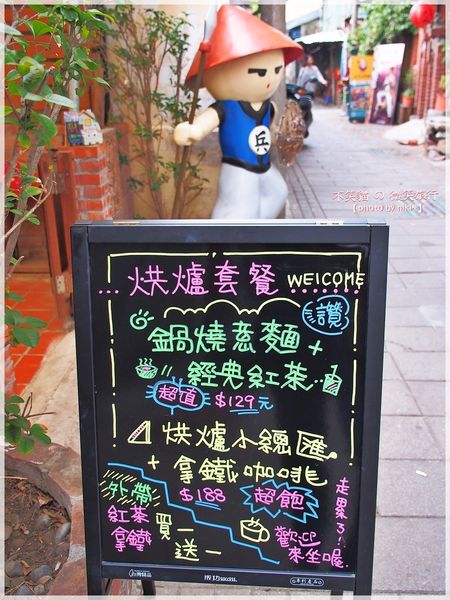 兵
木笑貓 の 微笑旅行
【photo by nikki】
...烘爐套餐 WELCOME......
讚
鍋燒意麵 +
經典紅茶...
超值 $129元
烘爐小總匯
+ 拿鐵咖啡
外帶 $188 超飽
走累了!
紅茶 買一
拿鐵 送一
歡迎
來坐喔